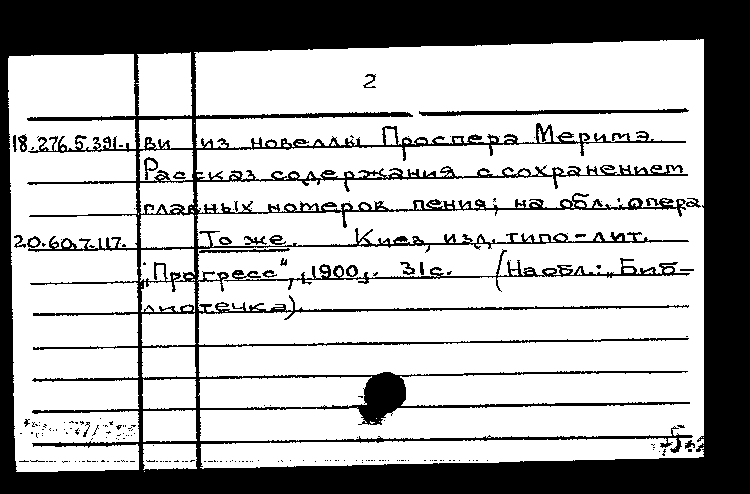 2
18.276.5.391., ви из новеллы Проспера Меримэ.
Рассказ содержания с сохранением
главных номеров пения; на обл.: опера.
20.60.7.117. То же. Киев, изд. типо-лит.
„Прогресс“, [1900]. 31 с. (На обл.: „Биб-
лиотечка).